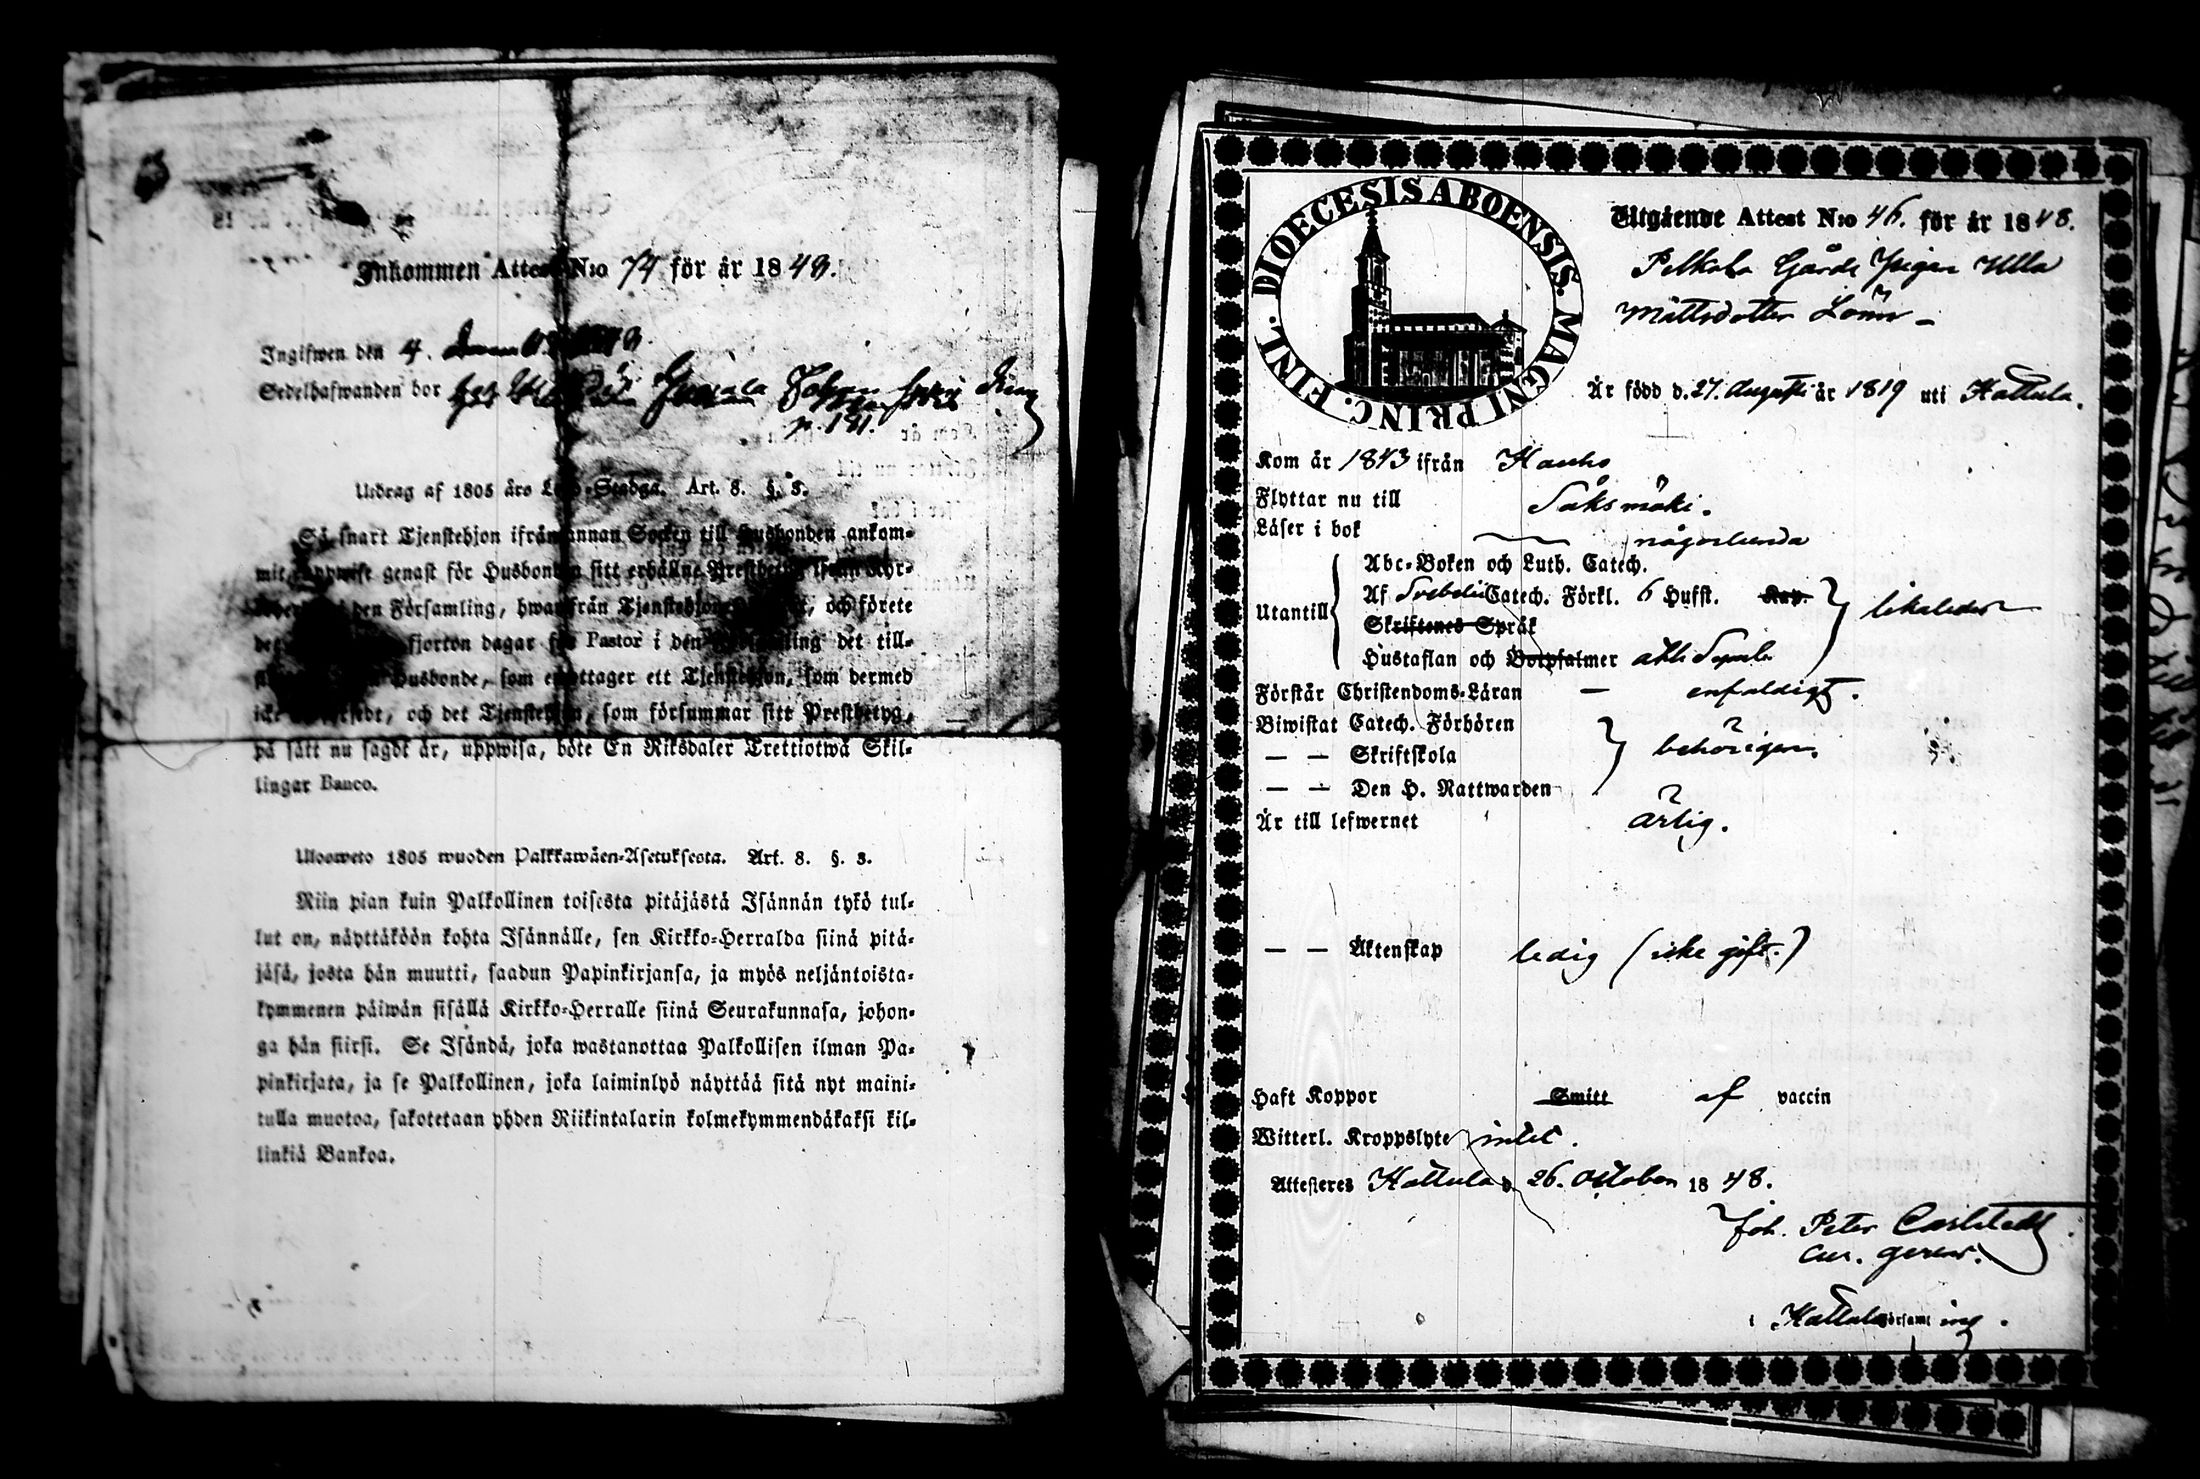 Inkommen Attest N:o 74 för år 1848.
Ingifwen den 4.
Sedelhafwanden bor Johan
p. 181.
Utdrag af 1805 års Lego-Stadga. Art. 8. §. 3.
Så snart Tjenstehjon ifrån annan Socken till Husbonden ankom-
mit, uppwise genast för Husbonden sitt erhållne Prestbetyg ifrån Kyr-
den Församling, hwarifrån Tjenstehjonet, och förete
fjorton dagar för Pastor i den Församling det till-
Husbonde, som emottager ett Tjenstehjon, som dermed
icke är försedt, och det Tjenstehjon, som försummar sitt Prestbetyg,
på sätt nu sagdt är, uppwisa, böte En Riksdaler Trettiotwå Skil-
lingar Banco.
Ulosweto 1805 wuoden Palkkawäen-Asetuksesta. Art. 8. §. 3.
Niin pian kuin Palkollinen toisesta pitäjästä Isännän tykö tul-
lut on, näyttäköön kohta Isännälle, sen Kirkko-Herralda siinä pitä-
jäsä, josta hän muutti, saadun Papinkirjansa, ja myös neljäntoista-
kymmenen päiwän sisällä Kirkko-Herralle siinä Seurakunnasa, johon-
ga hän siirsi. Se Isändä, joka wastanottaa Palkollisen ilman Pa-
pinkirjata, ja se Palkollinen, joka laiminlyö näyttää sitä nyt maini-
tulla muotoa, sakotetaan yhden Riikintalarin kolmekymmendäkaksi kil-
linkiä Bankoa.
DIOECESIS ABOENSIS. MAGNI PRINC. FINL.
Utgående Attest N:o 46. för år 1848.
Pelkola Gårds Pigan Ulla
Mattsdotter Lönn
Är född d. 27. Augusti år 1819 uti Hattula.
Kom år 1843 ifrån Hauho
Flyttar nu till Sääksmäki.
Läser i bok — någorlunda
Utantill Abc-Boken och Luth. Catech.
Af Svebelii Catech. Förkl. 6 Hufst. Kap. likaledes
Skriftenes Språk
Hustaflan och Botpsalmer
Förstår Christendoms-Läran — enfaldigt.
Biwistat Catech. Förhören
— — Skriftskola behörigen.
— — Den H. Nattwarden
Är till lefwernet ärlig.
— — Äktenskap ledig (icke gift.)
Haft Koppor Smitt af vaccin
Witterl. Kroppslyte intet.
Attesteres Hattula d. 26. October 1848.
Joh. Peter Carlstedt
cur. gerens.
i Hattula församling.